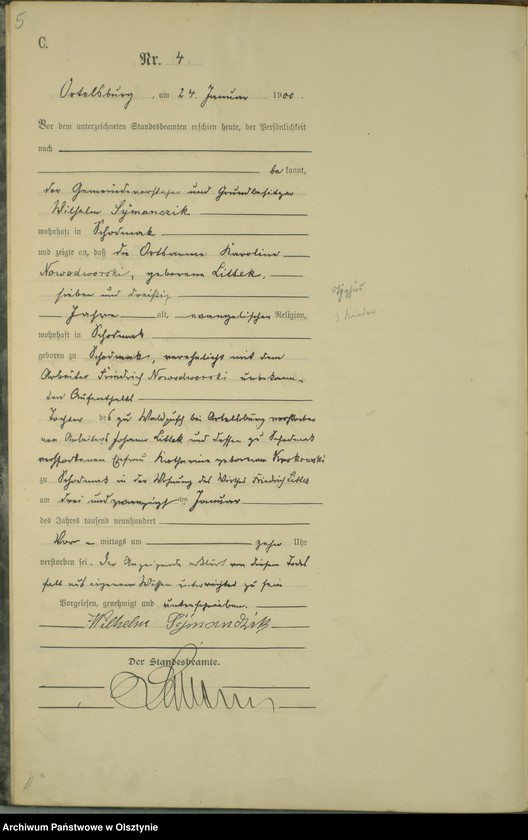 5
C.
Nr. 4
Ortelsburg, am 24. Januar 1900.
Vor dem unterzeichneten Standesbeamten erschien heute, der Persönlichkeit
nach
bekannt,
der Gemeindevorsteher und Grundbesitzer
Wilhelm Symanczik
wohnhaft in Schodmak
und zeigte an, daß die Ortsarme Karoline
Nowodworski, geborene Littek,
sieben und dreißig
Jahre alt, evangelischer Religion,
wohnhaft in Schodmak
geboren zu Schodmak, verehelicht mit dem
Arbeiter Friedrich Nowodworski unbekann-
ten Aufenthalts
Tochter des zu Waldpusch bei Ortelsburg verstorbe
nen Arbeiters Johann Littek und dessen zu Schodmak
verstorbenen Ehefrau Katharine geborenen
zu Schodmak in der Wohnung des Wirthes Friedrich Littek
am drei und zwanzigsten Januar
des Jahres tausend neunhundert
Vor-mittags um zehn Uhr
verstorben sei. Der Anzeigende erklärt von diesem Todes
fall aus eigenem Wissen unterrichtet zu sein
Vorgelesen, genehmigt und unterschrieben.
Wilhelm Symandzik
Der Standesbeamte.
3 Kinder
Archiwum Państwowe w Olsztynie